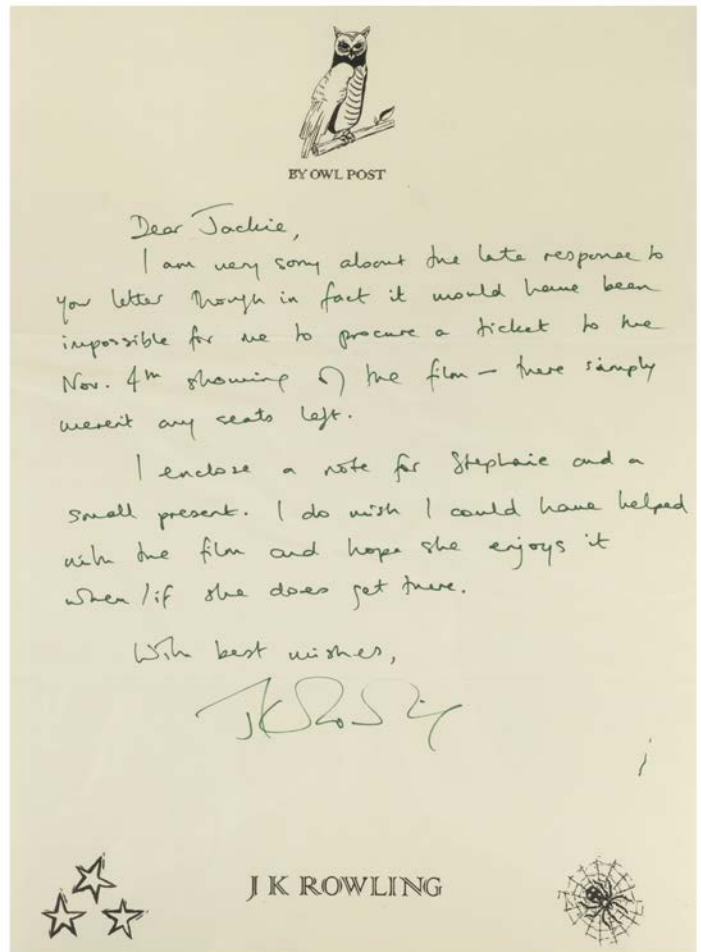 BY OWL POST
Dear Jackie,
I am very sorry about the late response to
your letter though in fact it would have been
impossible for me to procure a ticket to the
Nov. 4th showing of the film – there simply
weren't any seats left.
I enclose a note for Stephanie and a
small present. I do wish I could have helped
with the film and hope she enjoys it
when/if she does get there.
With best wishes,
JK Rowling
J K ROWLING